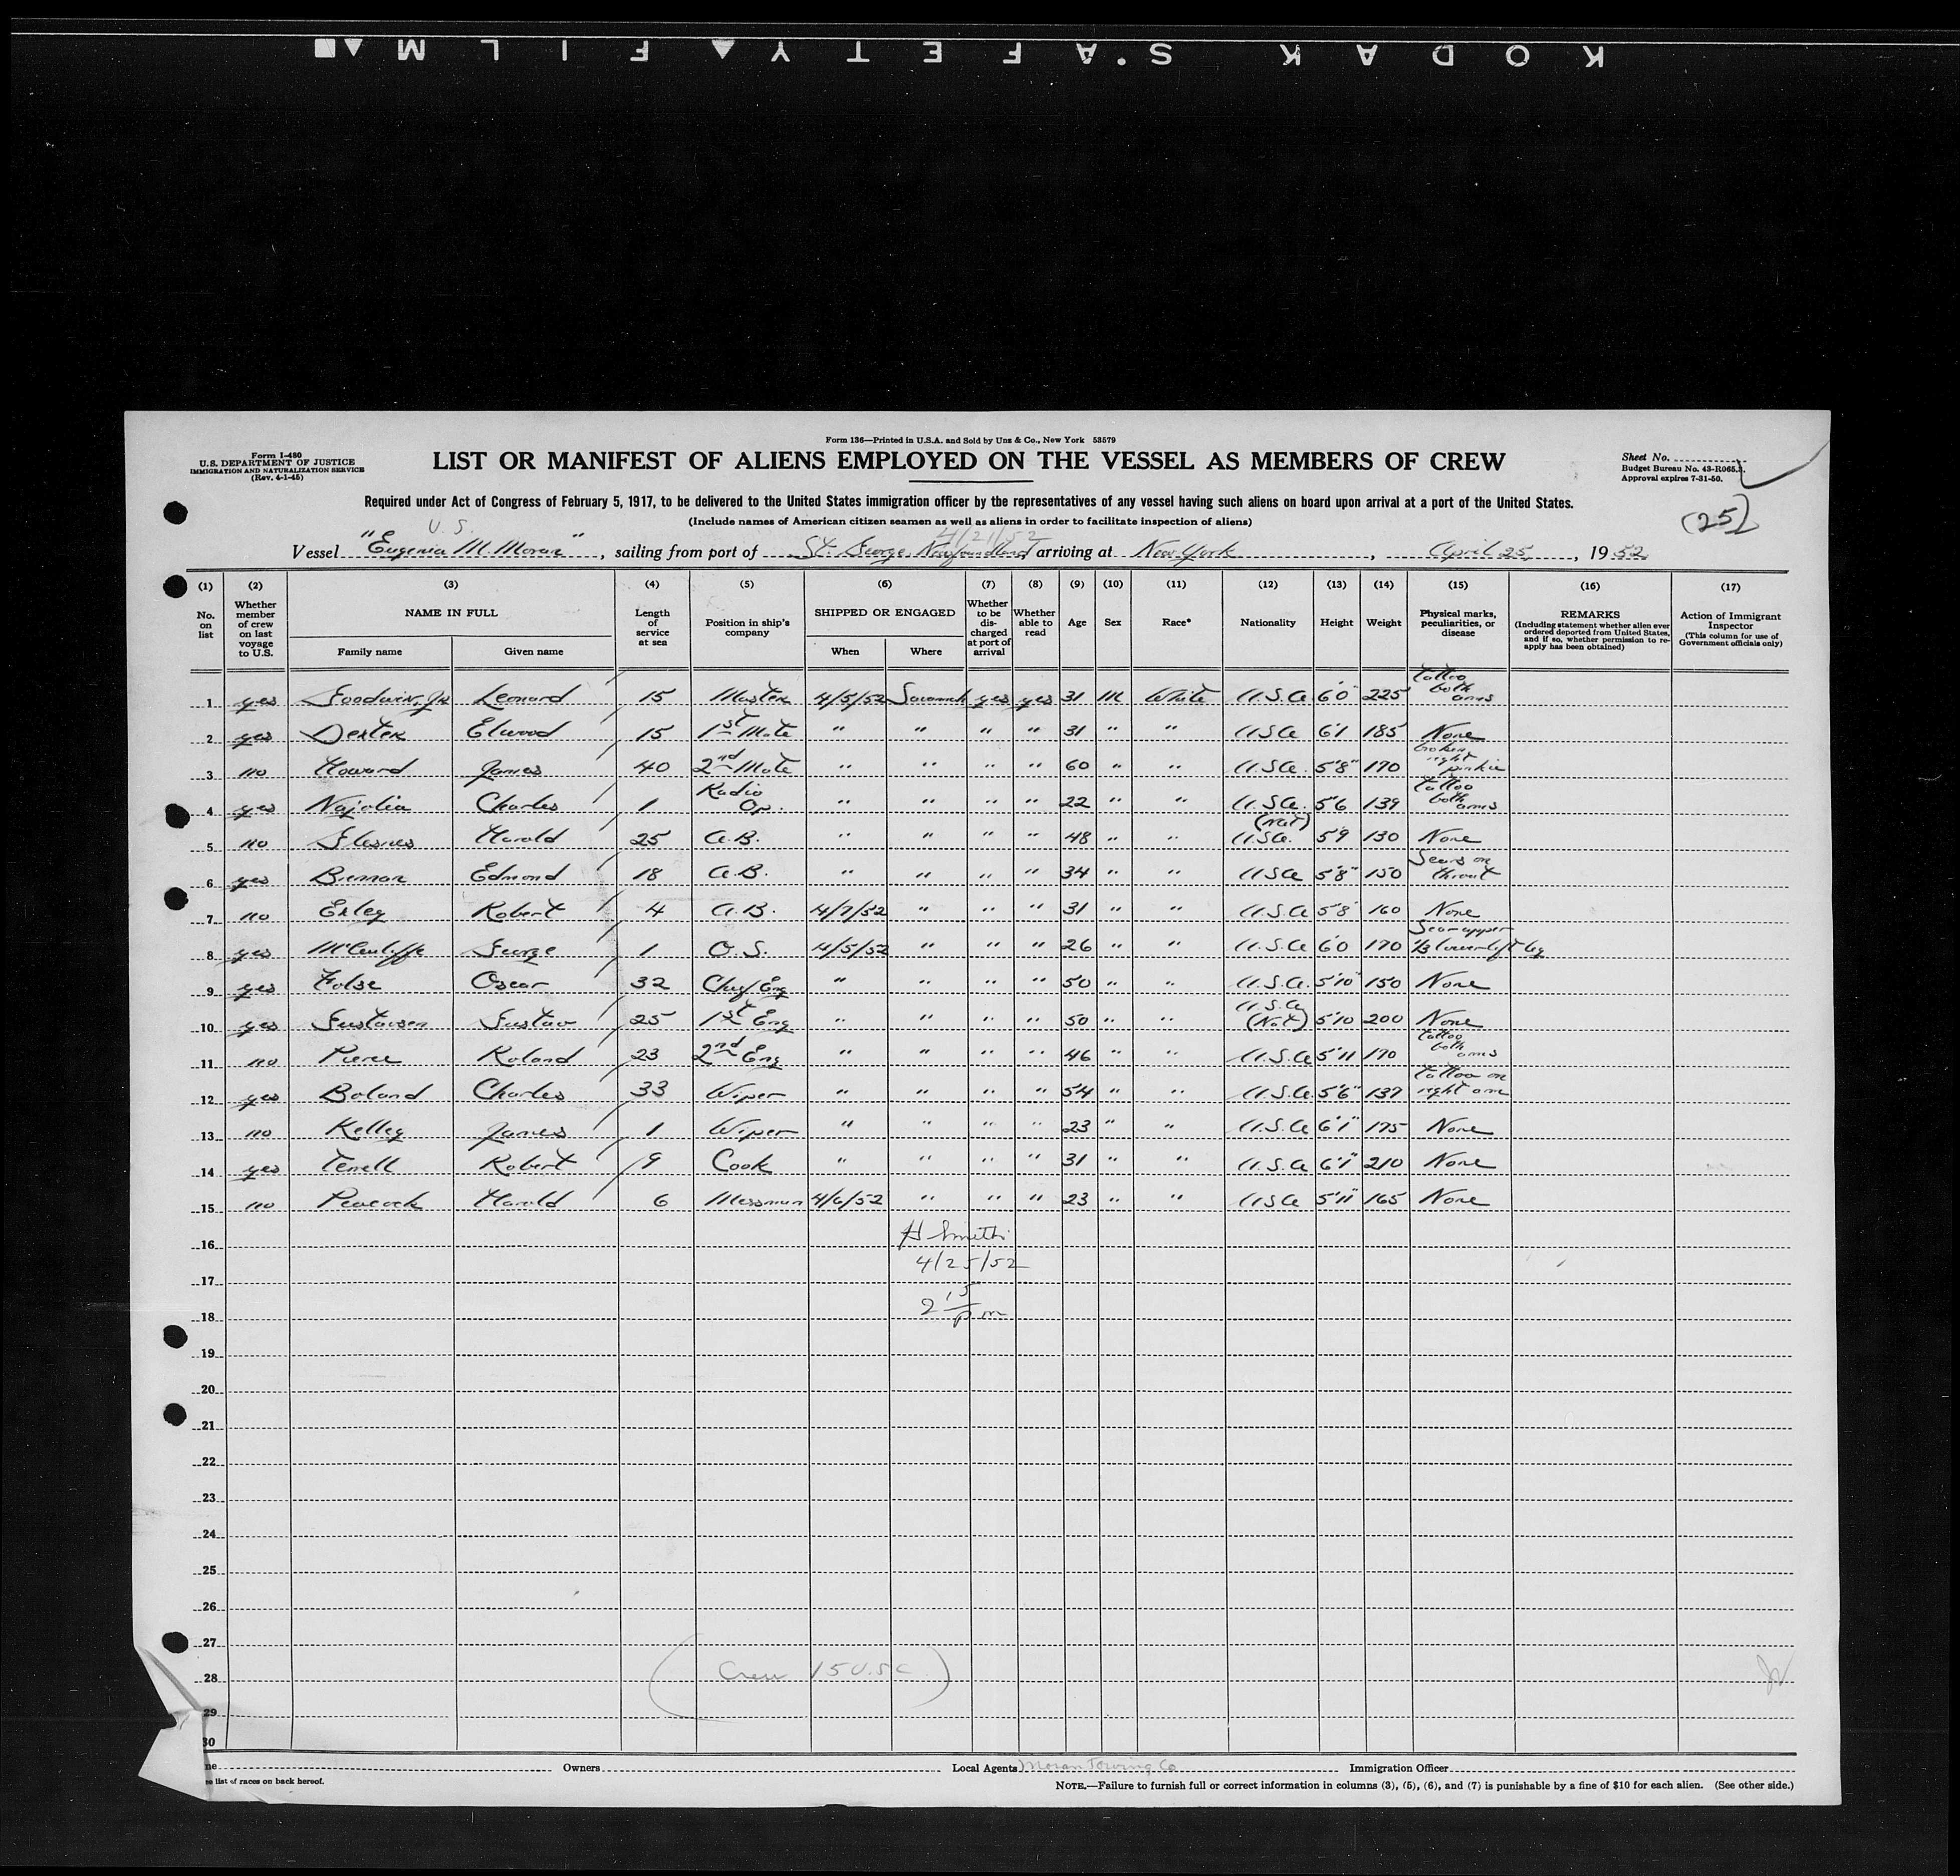 KODAK SAFETY FILM
Form 136—Printed in U.S.A. and Sold by Unz & Co., New York 53579
Form I-480
U.S. DEPARTMENT OF JUSTICE
IMMIGRATION AND NATURALIZATION SERVICE
(Rev. 4-1-45)
LIST OR MANIFEST OF ALIENS EMPLOYED ON THE VESSEL AS MEMBERS OF CREW
Sheet No.
Budget Bureau No. 43-R065.3.
Approval expires 7-31-50.
Required under Act of Congress of February 5, 1917, to be delivered to the United States immigration officer by the representatives of any vessel having such aliens on board upon arrival at a port of the United States.
(Include names of American citizen seamen as well as aliens in order to facilitate inspection of aliens)
(25)
U.S. 4/21/52
Vessel "Eugenia M. Moran", sailing from port of St. George, Newfoundland arriving at New York, April 25, 1952
(1) (2) (3) (4) (5) (6) (7) (8) (9) (10) (11) (12) (13) (14) (15) (16) (17)
No. on list
Whether member of crew on last voyage to U.S.
NAME IN FULL
Family name Given name
Length of service at sea
Position in ship's company
SHIPPED OR ENGAGED
When Where
Whether to be discharged at port of arrival
Whether able to read
Age
Sex
Race*
Nationality
Height
Weight
Physical marks, peculiarities, or disease
REMARKS
(Including statement whether alien ever ordered deported from United States, and if so, whether permission to reapply has been obtained)
Action of Immigrant Inspector
(This column for use of Government officials only)
1 yes Goodwin, Jr Leonard 15 Master 4/5/52 Savannah yes yes 31 M White U.S.A 6'0" 225 tattoo both arms
2 yes Dexter Elwood 15 1st Mate " " " " 31 " " USA 6'1 185 None
3 no Howard James 40 2nd Mate " " " " 60 " " U.S.A. 5'8" 170 broken right pinkie
4 yes Charles 1 Radio Op. " " " " 22 " " U.S.A. 5'6 139 tattoo both arms
5 no Harold 25 A.B. " " " " 48 " " (Nat) U.S.A. 5'9 130 None
6 yes Edmond 18 A.B. " " " " 34 " " USA 5'8" 150 Scars on throat
7 no Exley Robert 4 A.B. 4/7/52 " " " 31 " " U.S.A 5'8 160 None
8 yes McAuliffe George 1 O.S. 4/5/52 " " " 26 " " U.S.A 6'0 170 Scar upper 1/3 lower left leg
9 yes Folse Oscar 32 Chief Eng " " " " 50 " " U.S.A. 5'10" 150 None
10 yes Gustavsen Gustav 25 1st Eng " " " " 50 " " U.S.A (Nat) 5'10 200 None
11 no Pierce Roland 23 2nd Eng " " " " 46 " " U.S.A 5'11 170 tattoo both arms
12 yes Boland Charles 33 Wiper " " " " 54 " " U.S.A. 5'6" 137 tattoo on right arm
13 no Kelley James 1 Wiper " " " " 23 " " U.S.A 6'1" 175 None
14 yes Terrell Robert 9 Cook " " " " 31 " " U.S.A 6'1" 210 None
15 no Peacock Harold 6 Messman 4/6/52 " " " 23 " " USA 5'11" 165 None
16 H Smith
17 4/25/52
18 2 15 pm
19
20
21
22
23
24
25
26
27
28 (Crew 15 U.S.C.)
29
30
ne Owners Local Agents Moran Towing Co Immigration Officer
e list of races on back hereof.
NOTE.—Failure to furnish full or correct information in columns (3), (5), (6), and (7) is punishable by a fine of $10 for each alien. (See other side.)